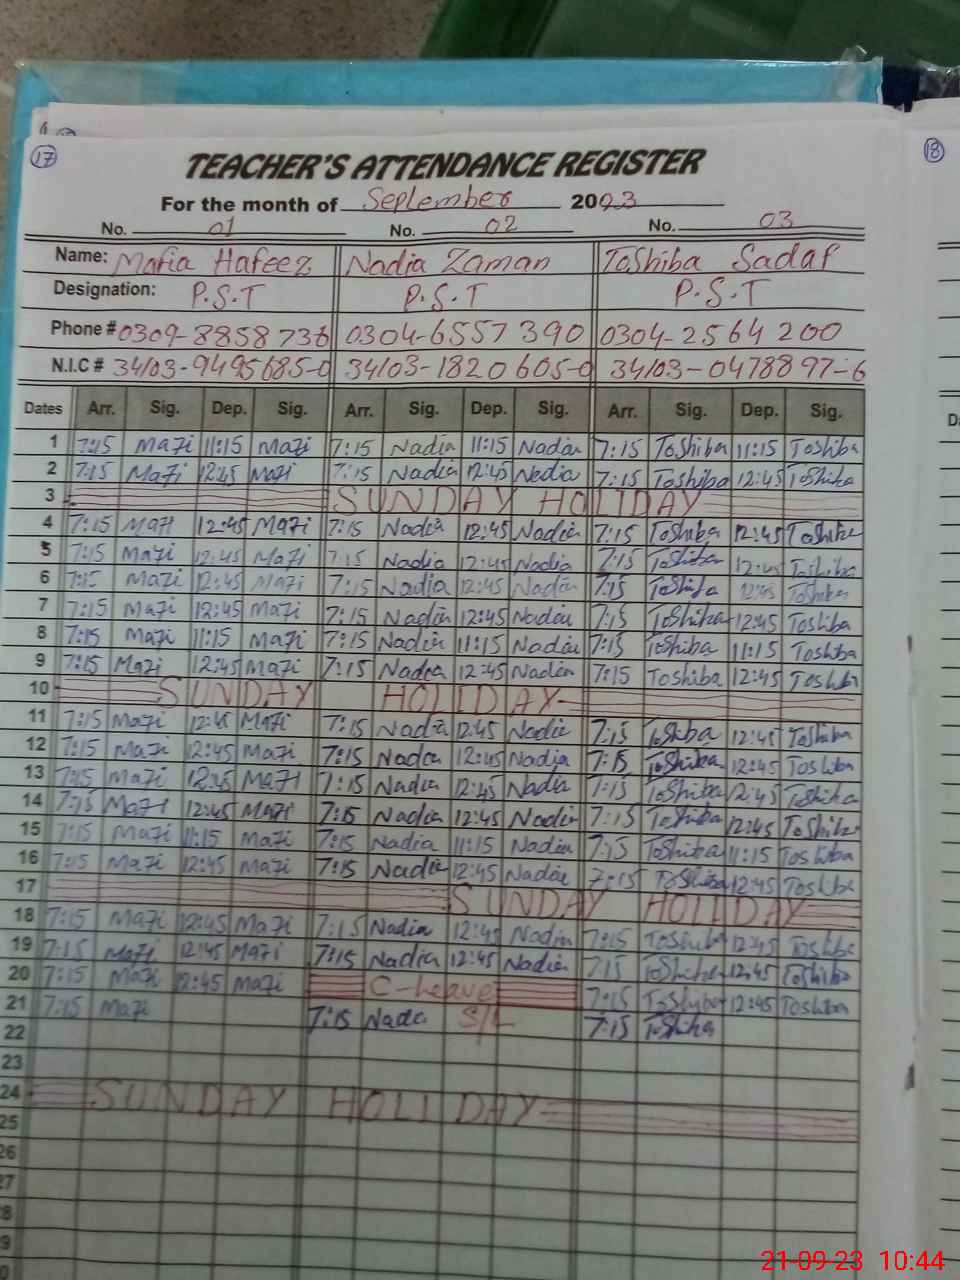 17
18
TEACHER'S ATTENDANCE REGISTER
For the month of September 2023
No. 01 No. 02 No. 03
Name: Mafia Hafeez Nadia Zaman Toshiba Sadaf
Designation: P.S.T P.S.T P.S.T
Phone # 0309-8858736 0304-6557390 0304-2564200
N.I.C # 34103-9495685-0 34103-1820605-0 34103-0478897-6
Dates Arr. Sig. Dep. Sig. Arr. Sig. Dep. Sig. Arr. Sig. Dep. Sig.
1 7:15 Mafi 11:15 Mafi 7:15 Nadia 11:15 Nadia 7:15 Toshiba 11:15 Toshiba
2 7:15 Mafi 12:45 Mafi 7:15 Nadia 12:45 Nadia 7:15 Toshiba 12:45 Toshiba
3 SUNDAY HOLIDAY
4 7:15 Mafi 12:45 Mafi 7:15 Nadia 12:45 Nadia 7:15 Toshiba 12:45 Toshiba
5 7:15 Mafi 12:45 Mafi 7:15 Nadia 12:45 Nadia 7:15 Toshiba 12:45 Toshiba
6 7:15 Mafi 12:45 Mafi 7:15 Nadia 12:45 Nadia 7:15 Toshiba 12:45 Toshiba
7 7:15 Mafi 12:45 Mafi 7:15 Nadia 12:45 Nadia 7:15 Toshiba 12:45 Toshiba
8 7:15 Mafi 11:15 Mafi 7:15 Nadia 11:15 Nadia 7:15 Toshiba 11:15 Toshiba
9 7:15 Mafi 12:45 Mafi 7:15 Nadia 12:45 Nadia 7:15 Toshiba 12:45 Toshiba
10 SUNDAY HOLIDAY
11 7:15 Mafi 12:45 Mafi 7:15 Nadia 12:45 Nadia 7:15 Toshiba 12:45 Toshiba
12 7:15 Mafi 12:45 Mafi 7:15 Nadia 12:45 Nadia 7:15 Toshiba 12:45 Toshiba
13 7:15 Mafi 12:45 Mafi 7:15 Nadia 12:45 Nadia 7:15 Toshiba 12:45 Toshiba
14 7:15 Mafi 12:45 Mafi 7:15 Nadia 12:45 Nadia 7:15 Toshiba 12:45 Toshiba
15 7:15 Mafi 11:15 Mafi 7:15 Nadia 11:15 Nadia 7:15 Toshiba 11:15 Toshiba
16 7:15 Mafi 12:45 Mafi 7:15 Nadia 12:45 Nadia 7:15 Toshiba 12:45 Toshiba
17 SUNDAY HOLIDAY
18 7:15 Mafi 12:45 Mafi 7:15 Nadia 12:45 Nadia 7:15 Toshiba 12:45 Toshiba
19 7:15 Mafi 12:45 Mafi 7:15 Nadia 12:45 Nadia 7:15 Toshiba 12:45 Toshiba
20 7:15 Mafi 12:45 Mafi C-Leave 7:15 Toshiba 12:45 Toshiba
21 7:15 Mafi 7:15 Nadia S/L 7:15 Toshiba
22
23
24 SUNDAY HOLIDAY
25
26
27
8
9
0
21-09-23 10:44